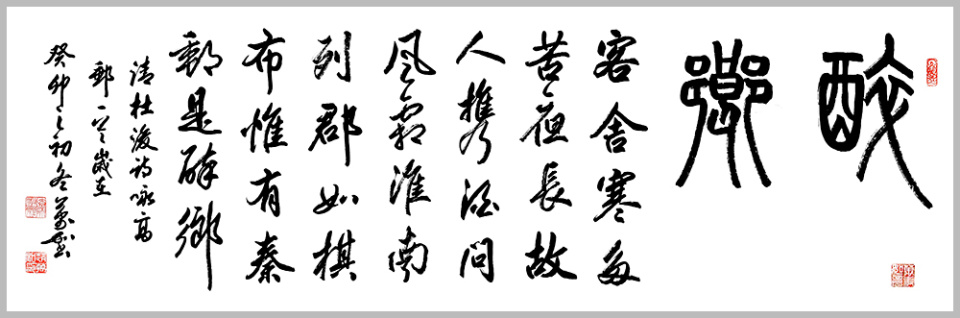 醉鄉
客舍寒多
苦夜長故
人攜酒問
風霜淮南
列郡如棋
布惟有秦
郵是醉鄉
清杜濬詩詠高
郵一首歲在
癸卯之初冬